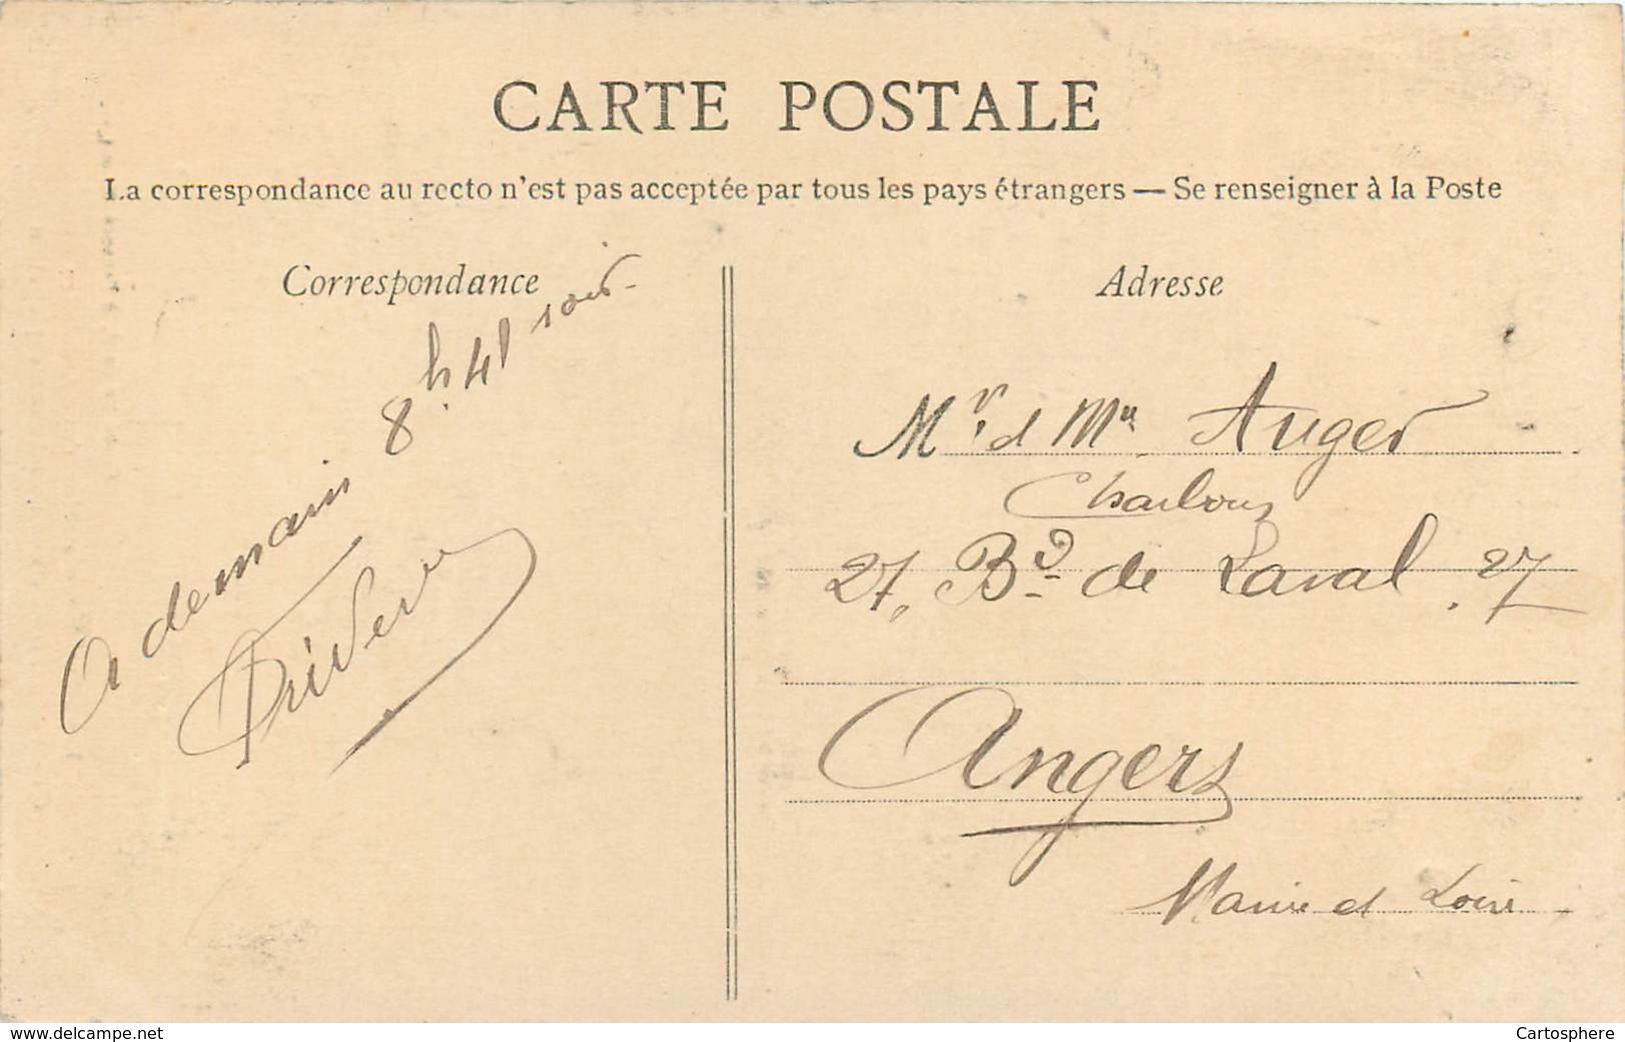 CARTE POSTALE
La correspondance au recto n'est pas acceptée par tous les pays étrangers — Se renseigner à la Poste
Correspondance
A demain 8h.41 soir
Adresse
Mr. et Mme Auger
Charbons
27, Bd de Laval, 27
Angers
Maine et Loire
www.delcampe.net
Cartosphere